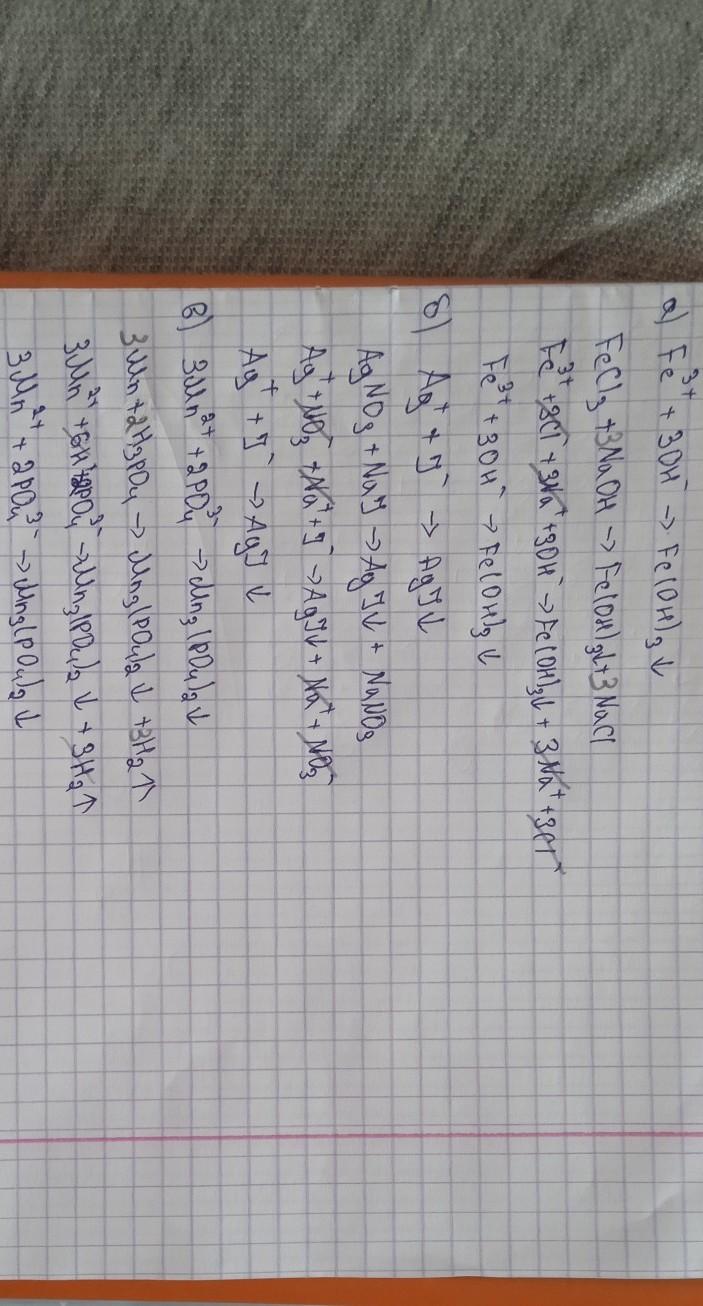 а) Fe³⁺ + 3OH⁻ → Fe(OH)₃↓
FeCl₃ + 3NaOH → Fe(OH)₃↓ + 3NaCl
Fe³⁺ + 3Cl⁻ + 3Na⁺ + 3OH⁻ → Fe(OH)₃↓ + 3Na⁺ + 3Cl⁻
Fe³⁺ + 3OH⁻ → Fe(OH)₃↓
б) Ag⁺ + J⁻ → AgJ↓
AgNO₃ + NaJ → AgJ↓ + NaNO₃
Ag⁺ + NO₃⁻ + Na⁺ + J⁻ → AgJ↓ + Na⁺ + NO₃⁻
Ag⁺ + J⁻ → AgJ↓
в) 3Mn²⁺ + 2PO₄³⁻ → Mn₃(PO₄)₂↓
3Mn + 2H₃PO₄ → Mn₃(PO₄)₂↓ + 3H₂↑
3Mn²⁺ + 6H⁺ + 2PO₄³⁻ → Mn₃(PO₄)₂↓ + 3H₂↑
3Mn²⁺ + 2PO₄³⁻ → Mn₃(PO₄)₂↓